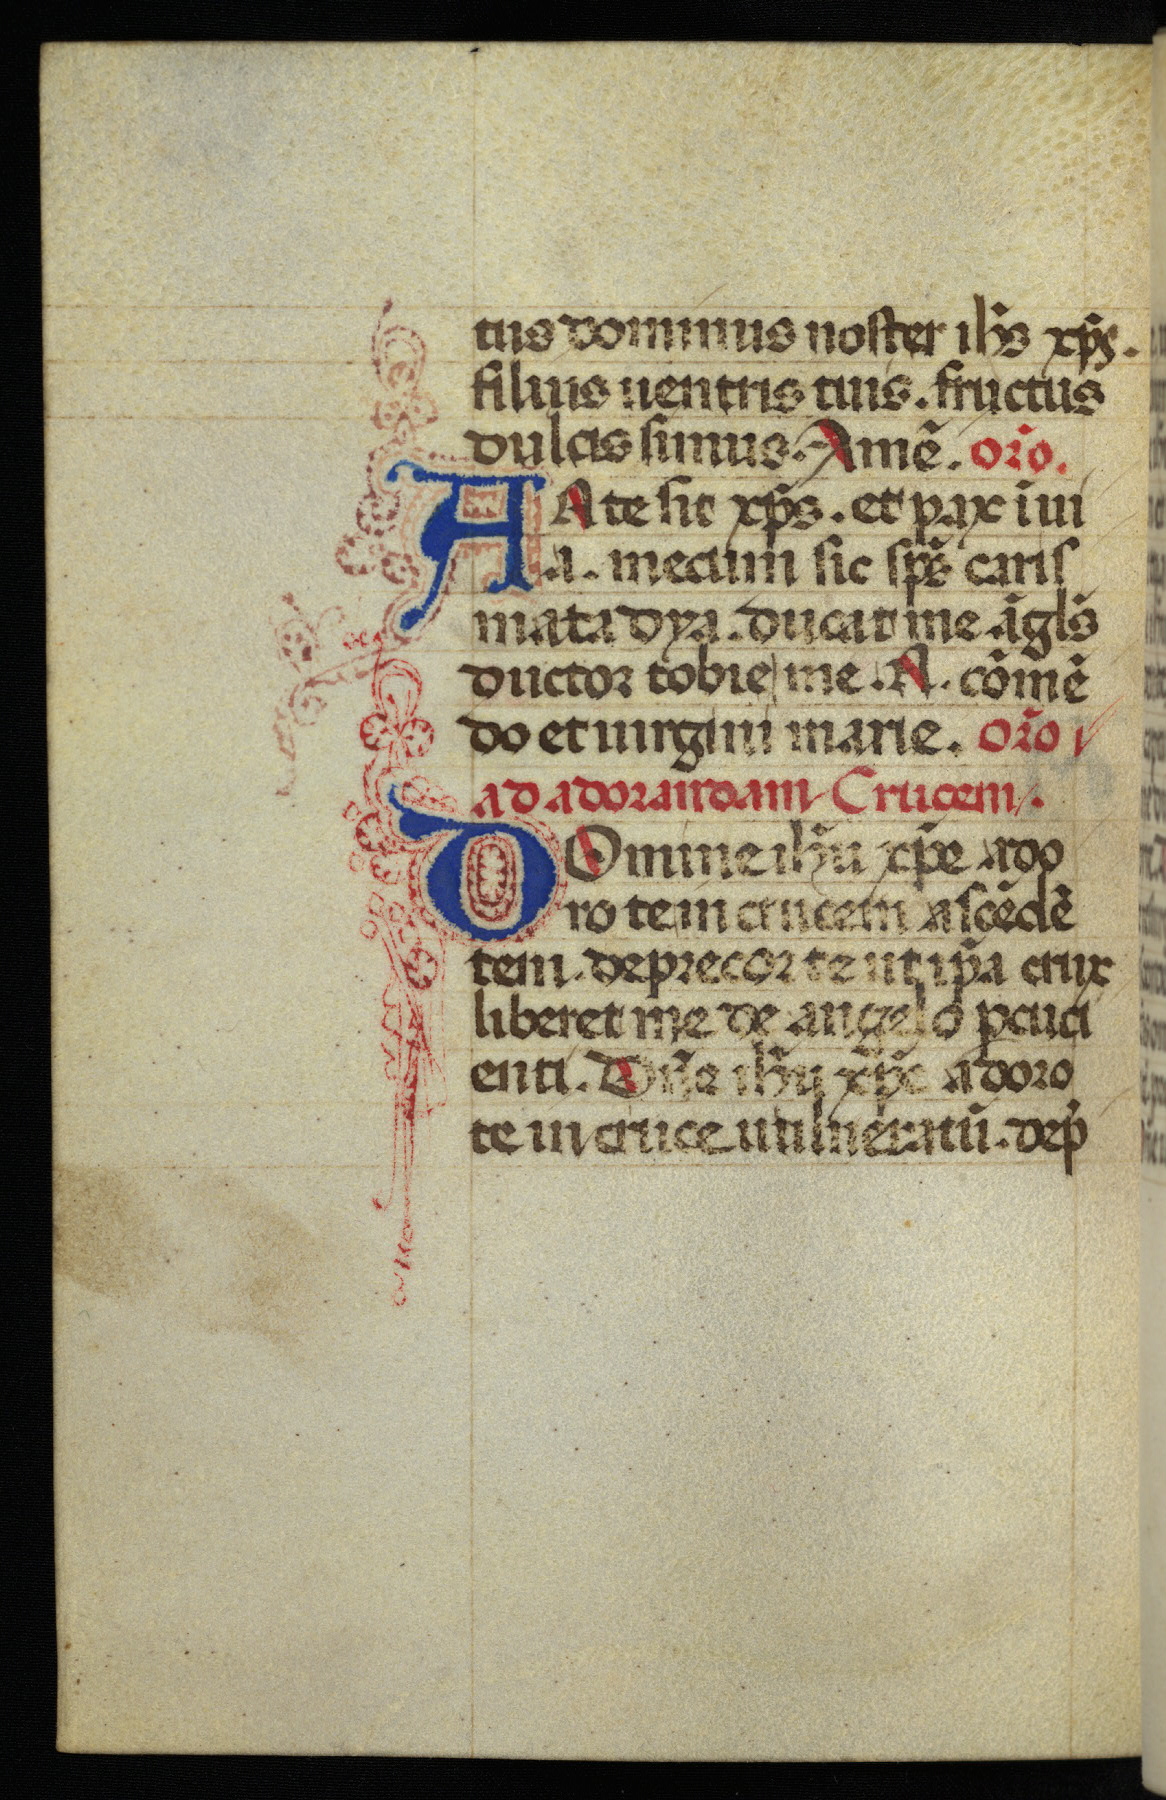 tus dominus noster ihs̄ xp̄s.
filius uentris tuis. fructus
dulcissimus. Amē. or̄o.
A Ate sit xp̄s. et pax i ui
.a. mecum sic sp̄s caris
mata dya. ducat me āgls̄
ductor tobie me .A. cōmē
do et uirgini marie. or̄o
ad adorandam Crucem.
D Omine ihū xp̄e ado
ro te in crucem ascēdē
tem. deprecor te ut ip̄a crux
liberet me de angelo ꝑcuci
enti. Dn̄e ihū xp̄e adoro
te in cruce uulneratū. dep̄